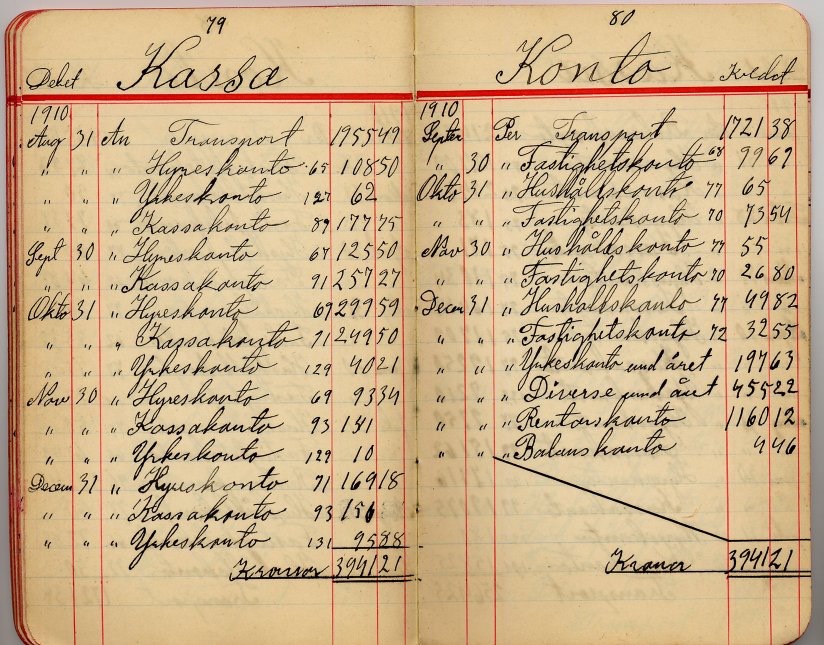 79
Debet Kassa
1910
Aug 31 An Transport 1955 49
" " " Hyreskonto 65 108 50
" " " Yrkeskonto 127 62
" " " Kassakonto 89 177 75
Sept 30 " Hyreskonto 67 125 50
" " " Kassakonto 91 257 27
Okto 31 " Hyreskonto 69 299 59
" " " Kassakonto 91 249 50
" " " Yrkeskonto 129 40 21
Nov 30 " Hyreskonto 69 93 34
" " " Kassakonto 93 131
" " " Yrkeskonto 129 10
Decem 31 " Hyreskonto 71 169 18
" " " Kassakonto 93 156
" " " Yrkeskonto 131 95 88
Kronor 3941 21
80
Konto Kredit
1910
Septer Per Transport 1721 38
" 30 " Fastighetskonto 68 99 67
Okto 31 " Hushållskonto 77 65
" " " Fastighetskonto 70 73 54
Nov 30 " Hushållskonto 77 55
" " " Fastighetskonto 70 26 80
Decem 31 " Hushållskonto 77 49 82
" " " Fastighetskonto 72 32 55
" " " Yrkeskonto und året 197 63
" " " Diverse und året 455 22
" " " Rentorskonto 1160 12
" " " Balanskonto 4 46
Kronor 3941 21